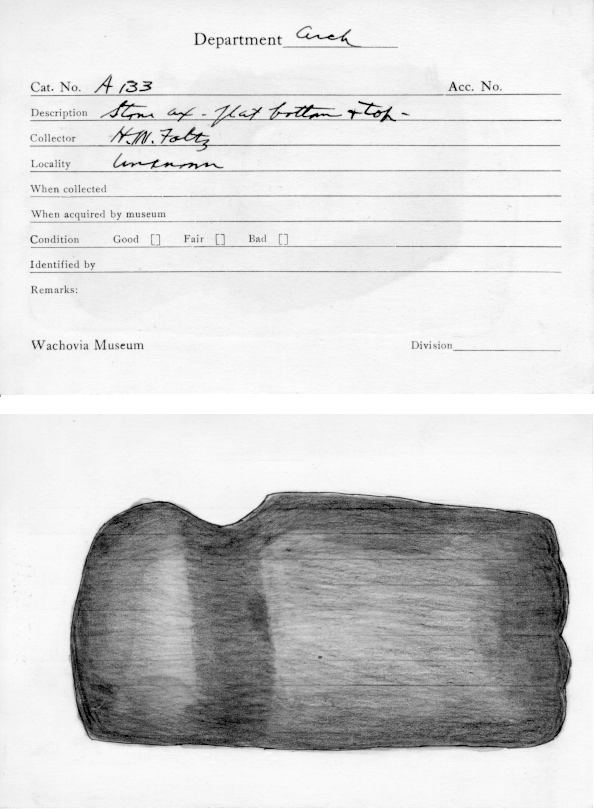 Department Arch
Cat. No. A 133 Acc. No.
Description Stone ax - flat bottom + top -
Collector H. W. Foltz
Locality Unknown
When collected
When acquired by museum
Condition Good [] Fair [] Bad []
Identified by
Remarks:
Wachovia Museum Division